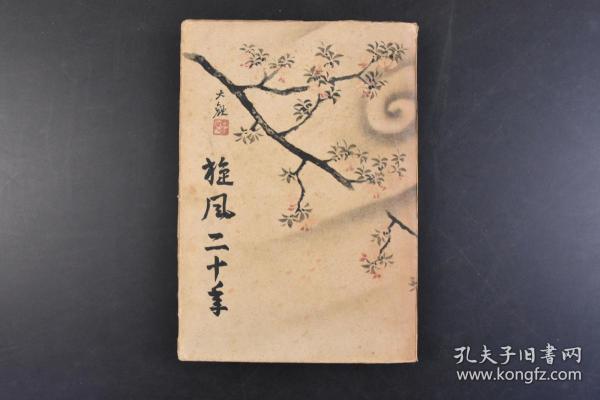 大観
旋風二十年
孔夫子旧书网
www.kongfz.com